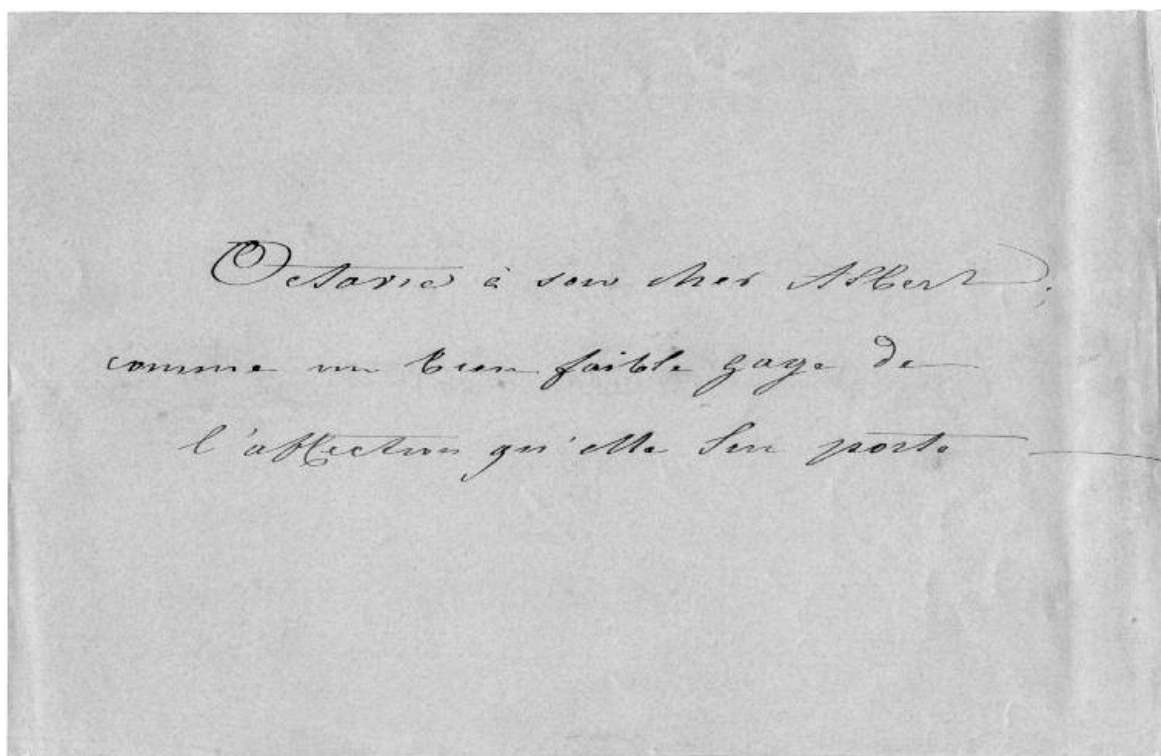 Octavie à son cher Albert;
comme un bien faible gage de
l'affection qu'elle lui porte